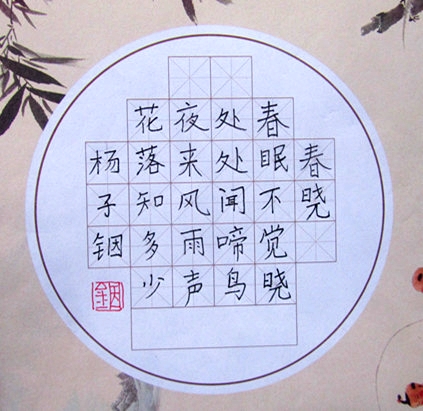 春晓
春眠不觉晓
处处闻啼鸟
夜来风雨声
花落知多少
杨子铟
铟